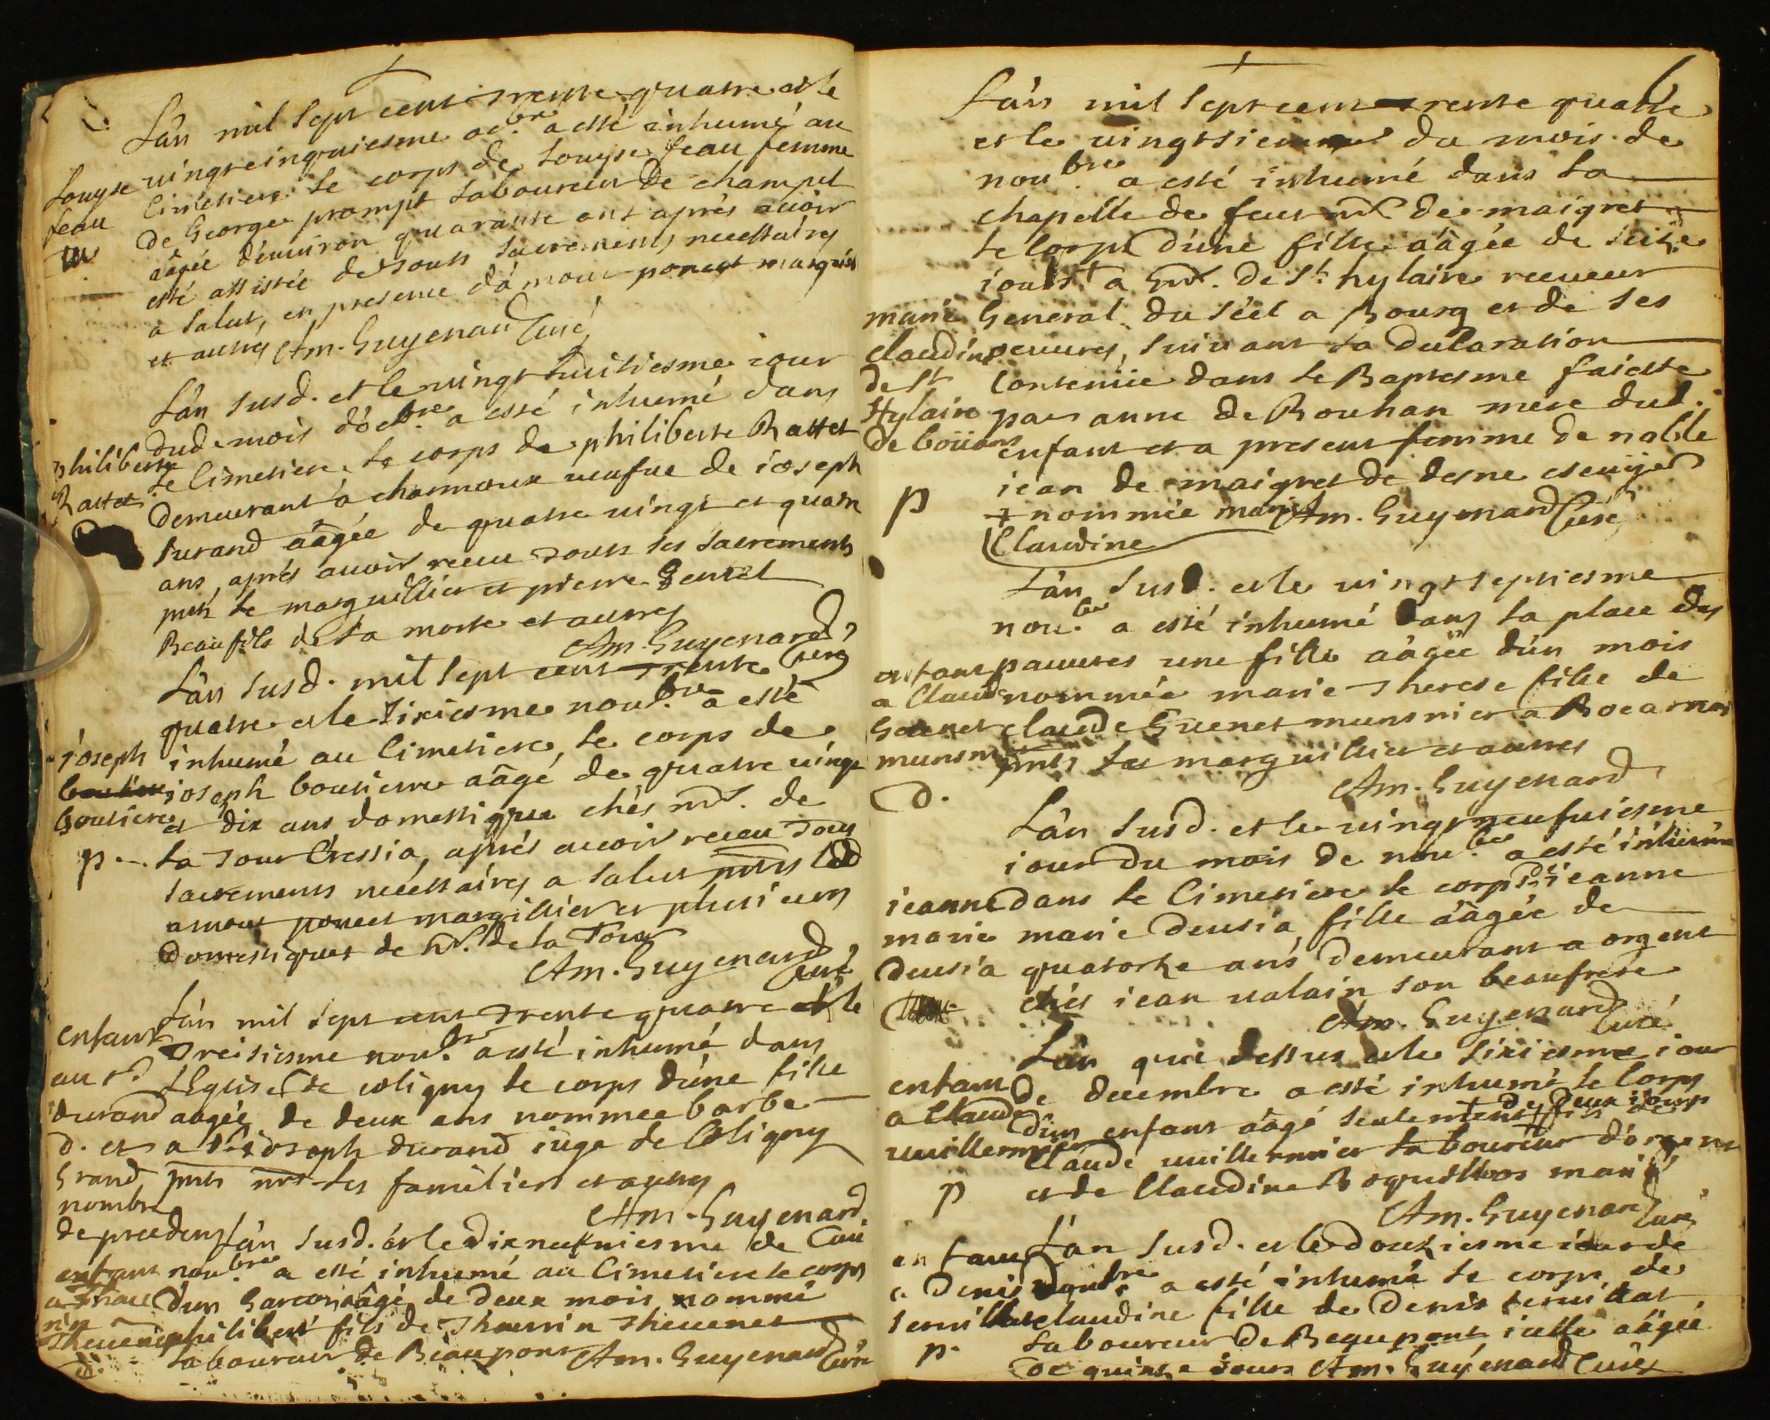 L'án mil sept cent trente quatre et le
vingtcinquiesme oc.bre a esté inhumé au
Cimetiere le corps de Louyse feau femme
Louyse
feau
de George prompt laboureur de champel
aâgée d'environ quarante ans aprés auoir
esté assistée de touts sacrements necessaires
a salut, en presence d'amour poncet marguill
et autres Am. Guyenard Curé
L'án susd. et le vingt huitiesme iour
dud. mois d'oct.bre a esté inhumé dans
philiberte
Rattet
le Cimetiere le corps de philiberte Rattet
demeurant à charmoux veufue de ioseph
Durand aâgée de quatre vingt et quatre
ans, aprés auoir receu touts les sacrements
pnts le marguillier et pierre
Beaufils de la morte et autres
Am. Guyenard, Curé
L'án susd. mil sept cent trente
quatre et le sixiesme nou.bre a esté
ioseph
boutiere
inhumé au Cimetiere, le corps de
ioseph boutiere aâgé de quatre vingt
et dix ans domestique chés mr. de
p.
la tour Cressia, aprés auoir receu tous
sacrements nécessaires a salut pnts led
amour poncet margillier et plusieurs
domestiques de Mr. de la Tour
Am. Guyenard, Curé
L'án mil sept cent trente quatre et le
enfant
au sr.
durand
treisiesme nou.bre a esté inhumé dans
l'Eglise de coligny le corps d'une fille
aâgée de deux ans nommee barbe
d. et a Sr ioseph durand iuge de Coligny
Grand
nombre
de precedens
pnts mrs les familiers et autres
Am. Guyenard, Curé
L'án susd. et le dixneufuiesme de
enfant
nou.bre a esté inhumé au Cimetiere le corps
d'un Garcon aâgé de deux mois nommé
Theuenet
philibert fils de Theuenet
d.
laboureur de Beaupont Am. Guyenard Curé
L'án mil sept cent trente quatre
et le vingtsixiesme du mois de
nou.bre a esté inhumé dans la
chapelle de feu mr de maigret
le corps d'une fille aâgée de seize
iours a Mr. de St. hylaire receueur
marie
Claudine
de St
Hylaire
de boüans
General du séel a Bourg et de ses
euures, suiuant la declaration
contenüe dans le Baptesme faicte
par anne de Rouhan mere dud.
enfant et a present femme de noble
iean de maigret de desne escuÿer
p
+ nommée marie Am. Guyenard Curé
Claudine
L'án susd. et le vingtseptiesme
nou.bre a esté inhumé dans la place des
enfant
a Claude
Guenet
munsnier
d.
pauures une fille aâgée d'un mois
nommée marie therese fille de
claude Guenet munsnier a Bocarnoz
pnts les marguillier et autres
Am. Guyenard,
L'án susd. et le vingtneufuiesme
iour du mois de nou.bre a esté inhumé
ieanne
marie
deusia
dans le Cimetiere le corps de ieanne
marie deusia fille aâgée de
quatorze ans demeurant a orgent
chés iean valain son beaufrere
Am. Guyenard Curé
L'án que dessus et le sixiesme iour
enfant
a Claude
vuillermier
p
de decembre a esté inhumé le Corps
d'un enfant aâgé seulement de deux iours fils de
Claude vuillermier laboureur d'orgent
et de Claudine mariés
Am. Guyenard Curé
L'án susd. et le douziesme iour de
enfant
a denis
teruillat
p.
d.bre a esté inhumé le corps de
claudine fille de Denis teruillat
laboureur de Beaupont icelle aâgée
de quinze iours Am. Guyenard Curé